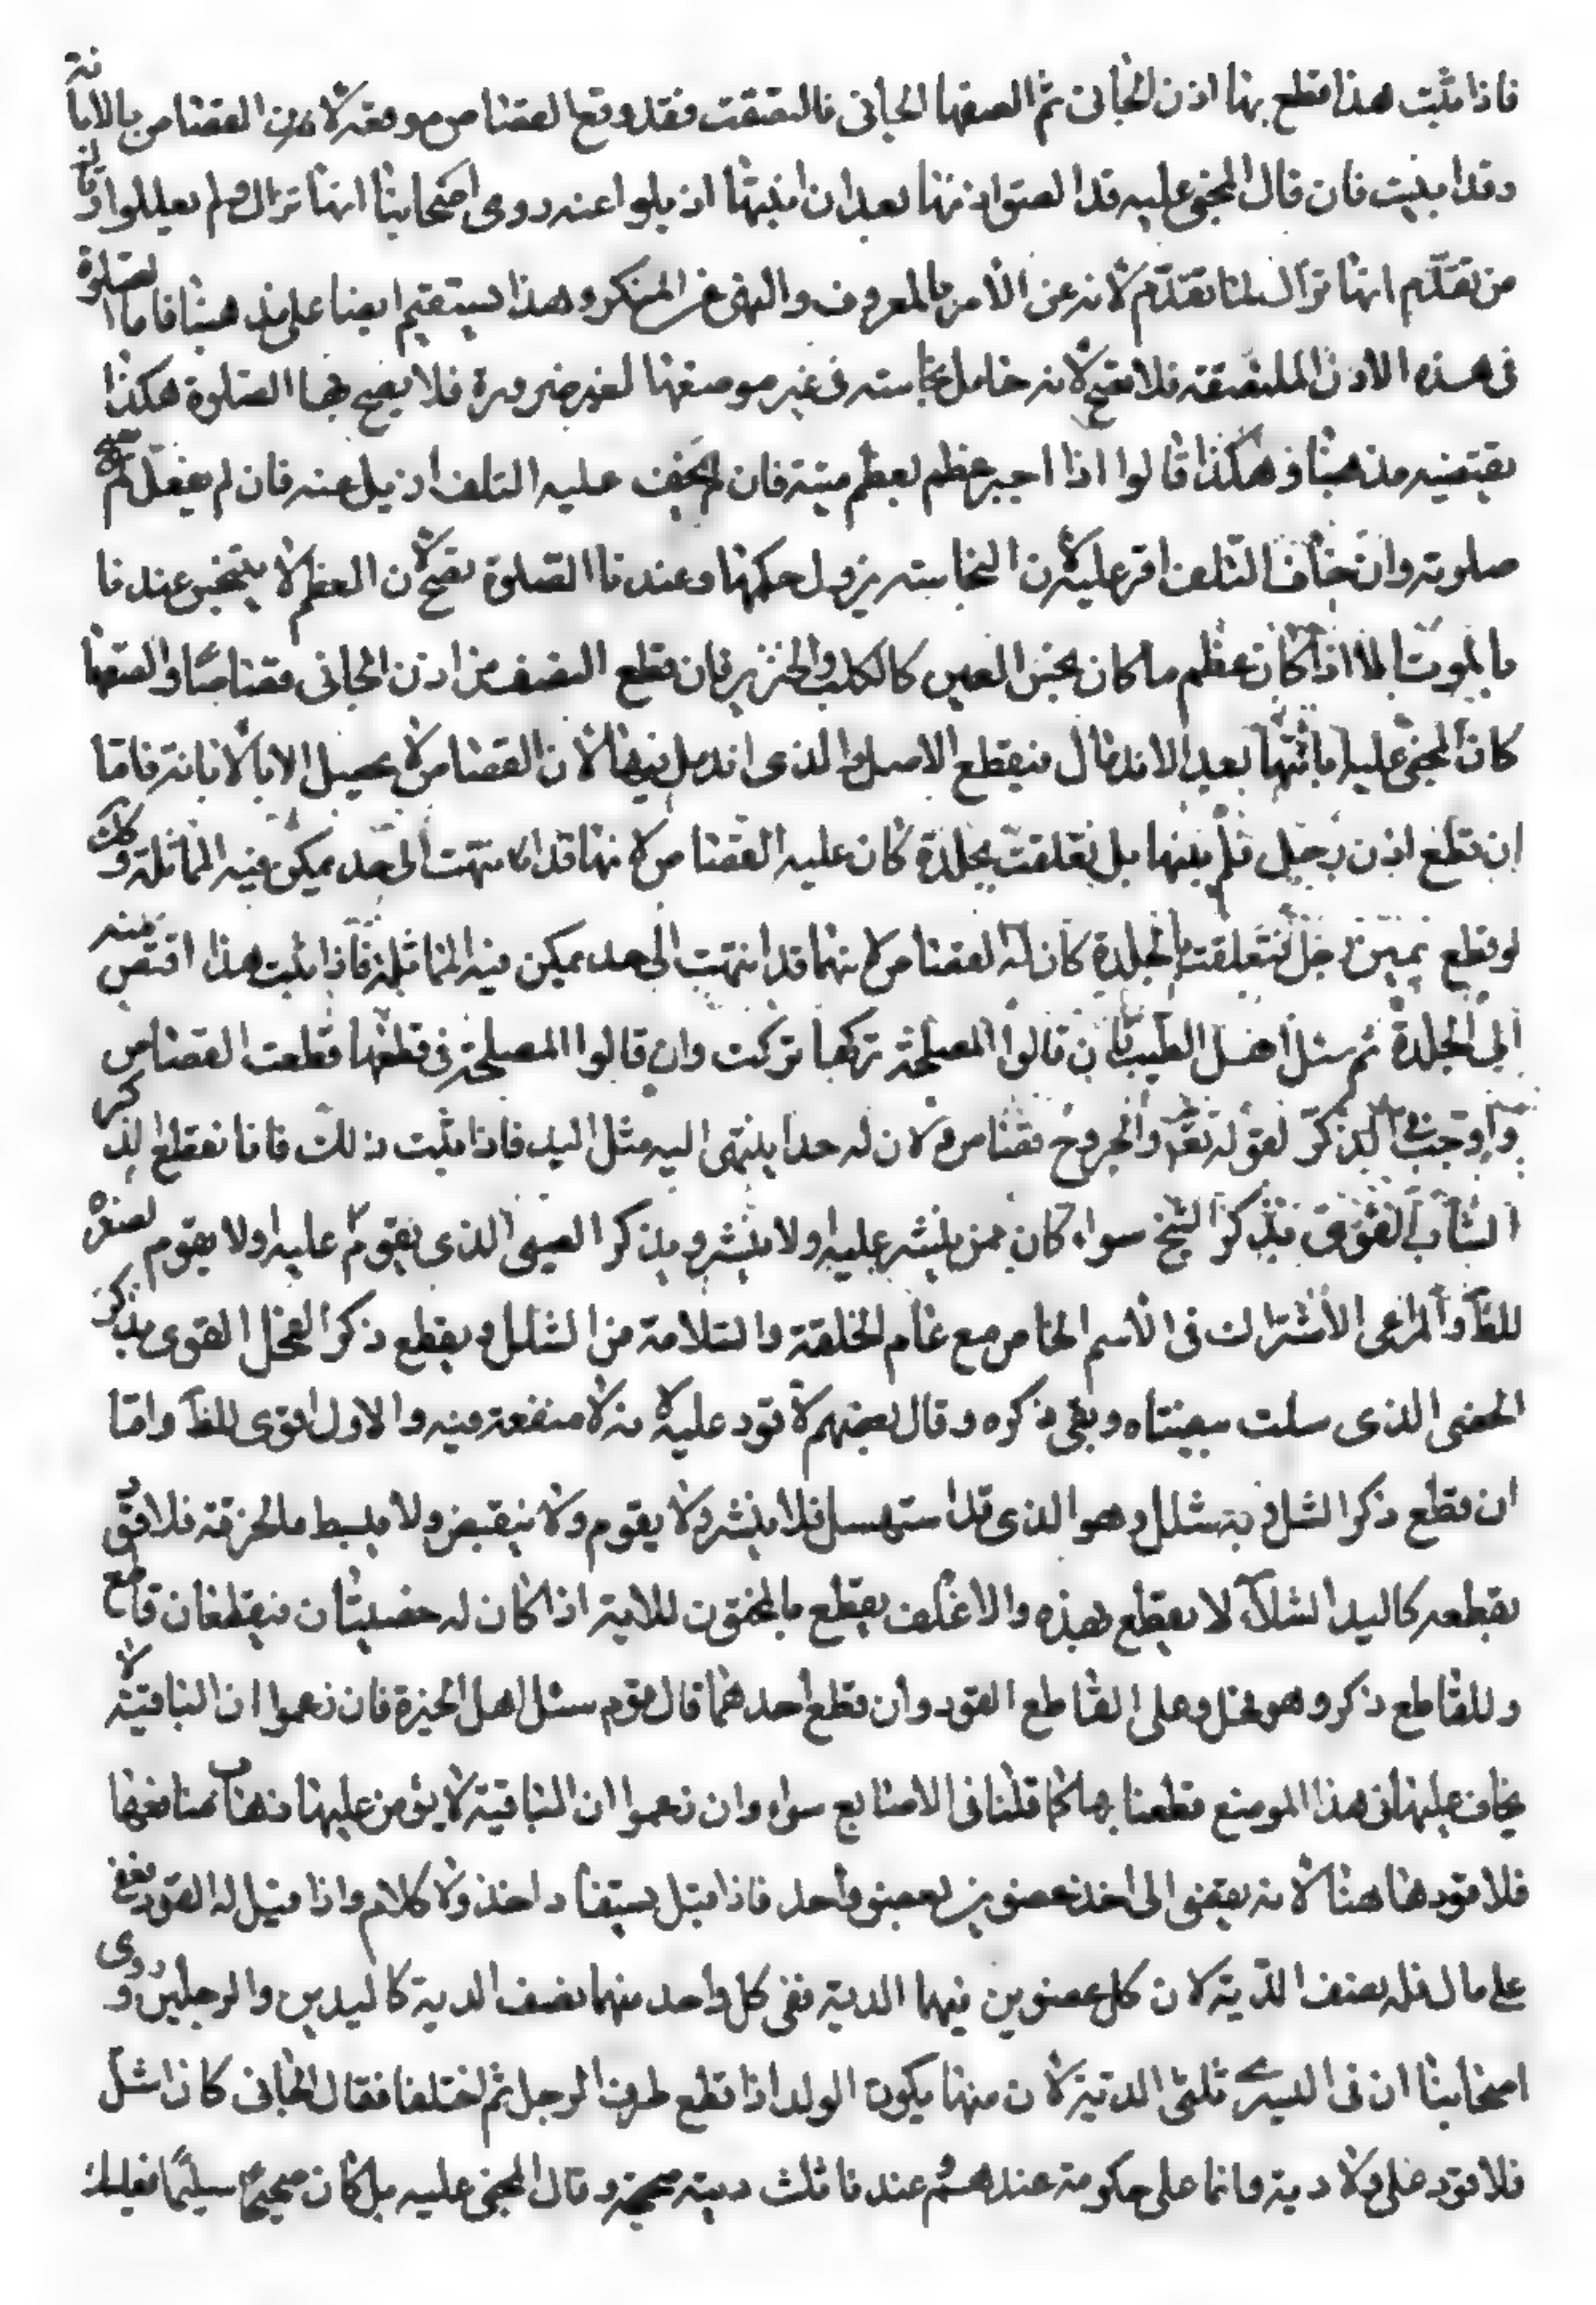 فاذا ثبت هذا فقطع بها اذن الجانى ثم الصقها الجانى فالتصقت فقد وقع القصاص موقعه لان القصاص بالابانة
وقد ابينت فان قال المجنى عليه قد التصق اذنه بعد ان ابنتها ازيلوا عنه روى اصحابنا انها تزال ولم يعللوا وقال
من تقدم انها تزال لما تقدم لانه من الامر بالمعروف والنهى عن المنكر وهذا يستقيم ايضا على مذهبنا فاما الصلوة
فى هذه الاذن الملتصقة فلا تصح لانه حامل نجاسة فى غير موضعها لغير ضرورة فلا يصح بها الصلوة هكذا
يقتضيه مذهبنا وهكذا قالوا اذا اجبر عظم بعظم ميتة فان لم يخف عليه التلف ازيل عنه فان لم يفعل لم تصح
صلوته وان خاف التلف اقر عليه لان النجاسة يزول حكمها وعندنا الصلوة تصح لان العظم لا ينجس عندنا
بالموت الا اذا كان عظم ما كان نجس العين كالكلب والخنزير فان قطع النصف من اذن الجانى قصاصا والصقها
كان المجنى عليه ابانتها بعد الاندمال فيقطع الاصل والذى اندمل منها لان القصاص لا يحصل الا بالابانة فاما
ان قطع اذن رجل فلم يبنها بل تعلقت بجلدة كان عليه القصاص لانها قد انتهت الى حد يمكن فيه المماثلة وكذلك
لو قطع يمين رجل فتعلقت بالجلدة كان له القصاص لانها قد انتهت الى حد يمكن فيه المماثلة فاذا ثبت هذا اقتص منه
الى الجلدة ثم سئل اهل الطب فان قالوا المصلحة تركها تركت وان قالوا المصلحة فى قطعها قطعت القصاص
واجب فى الذكر لقوله تعالى والجروح قصاص ولان له حدا ينتهى اليه مثل اليد فاذا ثبت ذلك فانا نقطع الذكر
الشاب القوى بذكر الشيخ سواء كان ممن ينشر عليه او لا ينشر وبذكر الصبى الذى يقوم عليه او لا يقوم لصغره
للظاهر والمراعى الاشتراك فى الاسم الخاص مع تمام الخلقة والسلامة من الشلل ويقطع ذكر الفحل القوى بذكر
الخصى الذى سلت بيضتاه وبقى ذكره وقال بعضهم لا قود عليه لانه لا منفعة فيه والاول اقوى للظاهر واما
ان قطع ذكر اشل وبه شلل وهو الذى قد استرسل فلا ينشر ولا يقوم ولا ينقبض ولا ينبسط كالخرقة فلا قود
بقطعه كاليد الشلاء لا يقطع بهذه والاغلف يقطع بالمختون للاية اذا كان له خصيتان فيقطعان قاطع
وللقاطع ذكر وهو فحل وعلى القاطع القود وان قطع احدهما قال قوم سئل اهل الخبرة فان زعموا ان الباقية لا
يخاف عليها فى هذا الموضع قطعنا بها كما قلنا فى الاصابع سواء وان زعموا ان الباقية لا يؤمن عليها ذهاب منافعها
فلا قود هاهنا لانه يفضى الى اخذ عضوين بعضو واحد فاذا قيل يستقاد اخذ ولا كلام واذا قيل له القود فعفى
على مال فله نصف الدية لان كل عضوين فيهما الدية ففى كل واحد منهما نصف الدية كاليدين والرجلين وروى
اصحابنا ان فى اليسرى ثلثى الدية لان منها يكون الولد اذا قطع طرف الرجل ثم اختلفا فقال الجانى كان اشل
فلا قود على ولا دية وانما على حكومة عندهم وعندنا ثلث دية صحيحة وقال المجنى عليه بل كان صحيحا سليما فعليك